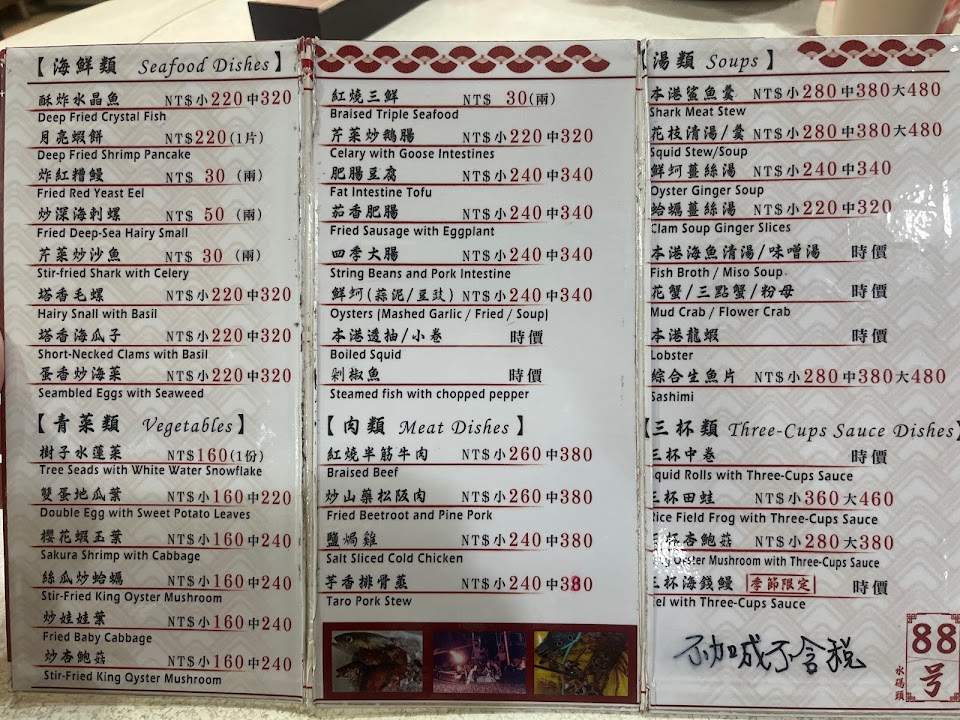 【海鮮類 Seafood Dishes】
酥炸水晶魚 NT$小220中320
Deep Fried Crystal Fish
月亮蝦餅 NT$220(1片)
Deep Fried Shrimp Pancake
炸紅糟鰻 NT$ 30 (兩)
Fried Red Yeast Eel
炒深海刺螺 NT$ 50 (兩)
Fried Deep-Sea Hairy Small
芹菜炒沙魚 NT$ 30 (兩)
Stir-fried Shark with Celery
塔香毛螺 NT$小220中320
Hairy Snall with Basil
塔香海瓜子 NT$小220中320
Short-Necked Clams with Basil
蛋香炒海菜 NT$小220中320
Seambled Eggs with Seaweed
【青菜類 Vegetables】
樹子水蓮菜 NT$160(1份)
Tree Seads with White Water Snowflake
雙蛋地瓜葉 NT$小160中220
Double Egg with Sweet Potato Leaves
櫻花蝦玉葉 NT$小160中240
Sakura Shrimp with Cabbage
絲瓜炒蛤蠣 NT$小160中240
Stir-Fried King Oyster Mushroom
炒娃娃葉 NT$小160中240
Fried Baby Cabbage
炒杏鮑菇 NT$小160中240
Stir-Fried King Oyster Mushroom
紅燒三鮮 NT$ 30(兩)
Braised Triple Seafood
芹菜炒鵝腸 NT$小220中320
Celary with Goose Intestines
肥腸豆腐 NT$小240中340
Fat Intestine Tofu
茄香肥腸 NT$小240中340
Fried Sausage with Eggplant
四季大腸 NT$小240中340
String Beans and Pork Intestine
鮮蚵(蒜泥/豆豉) NT$小240中340
Oysters (Mashed Garlic / Fried / Soup)
本港透抽/小卷 時價
Boiled Squid
剁椒魚 時價
Steamed fish with chopped pepper
【肉類 Meat Dishes】
紅燒半筋牛肉 NT$小260中380
Braised Beef
炒山藥松阪肉 NT$小260中380
Fried Beetroot and Pine Pork
鹽焗雞 NT$小240中380
Salt Sliced Cold Chicken
芋香排骨蒸 NT$小240中380
Taro Pork Stew
湯類 Soups】
本港鯊魚羹 NT$小280中380大480
Shark Meat Stew
花枝清湯/羹 NT$小280中380大480
Squid Stew/Soup
鮮蚵薑絲湯 NT$小240中340
Oyster Ginger Soup
蛤蠣薑絲湯 NT$小220中320
Clam Soup Ginger Slices
本港海魚清湯/味噌湯 時價
Fish Broth / Miso Soup
花蟹/三點蟹/粉母 時價
Mud Crab / Flower Crab
本港龍蝦 時價
Lobster
綜合生魚片 NT$小280中380大480
Sashimi
【三杯類 Three-Cups Sauce Dishes】
三杯中卷 時價
Squid Rolls with Three-Cups Sauce
三杯田蛙 NT$小360大460
Rice Field Frog with Three-Cups Sauce
三杯杏鮑菇 NT$小280大380
King Oyster Mushroom with Three-Cups Sauce
三杯海錢鰻 季節限定 時價
Eel with Three-Cups Sauce
不加成不含稅
88
号
水碼頭